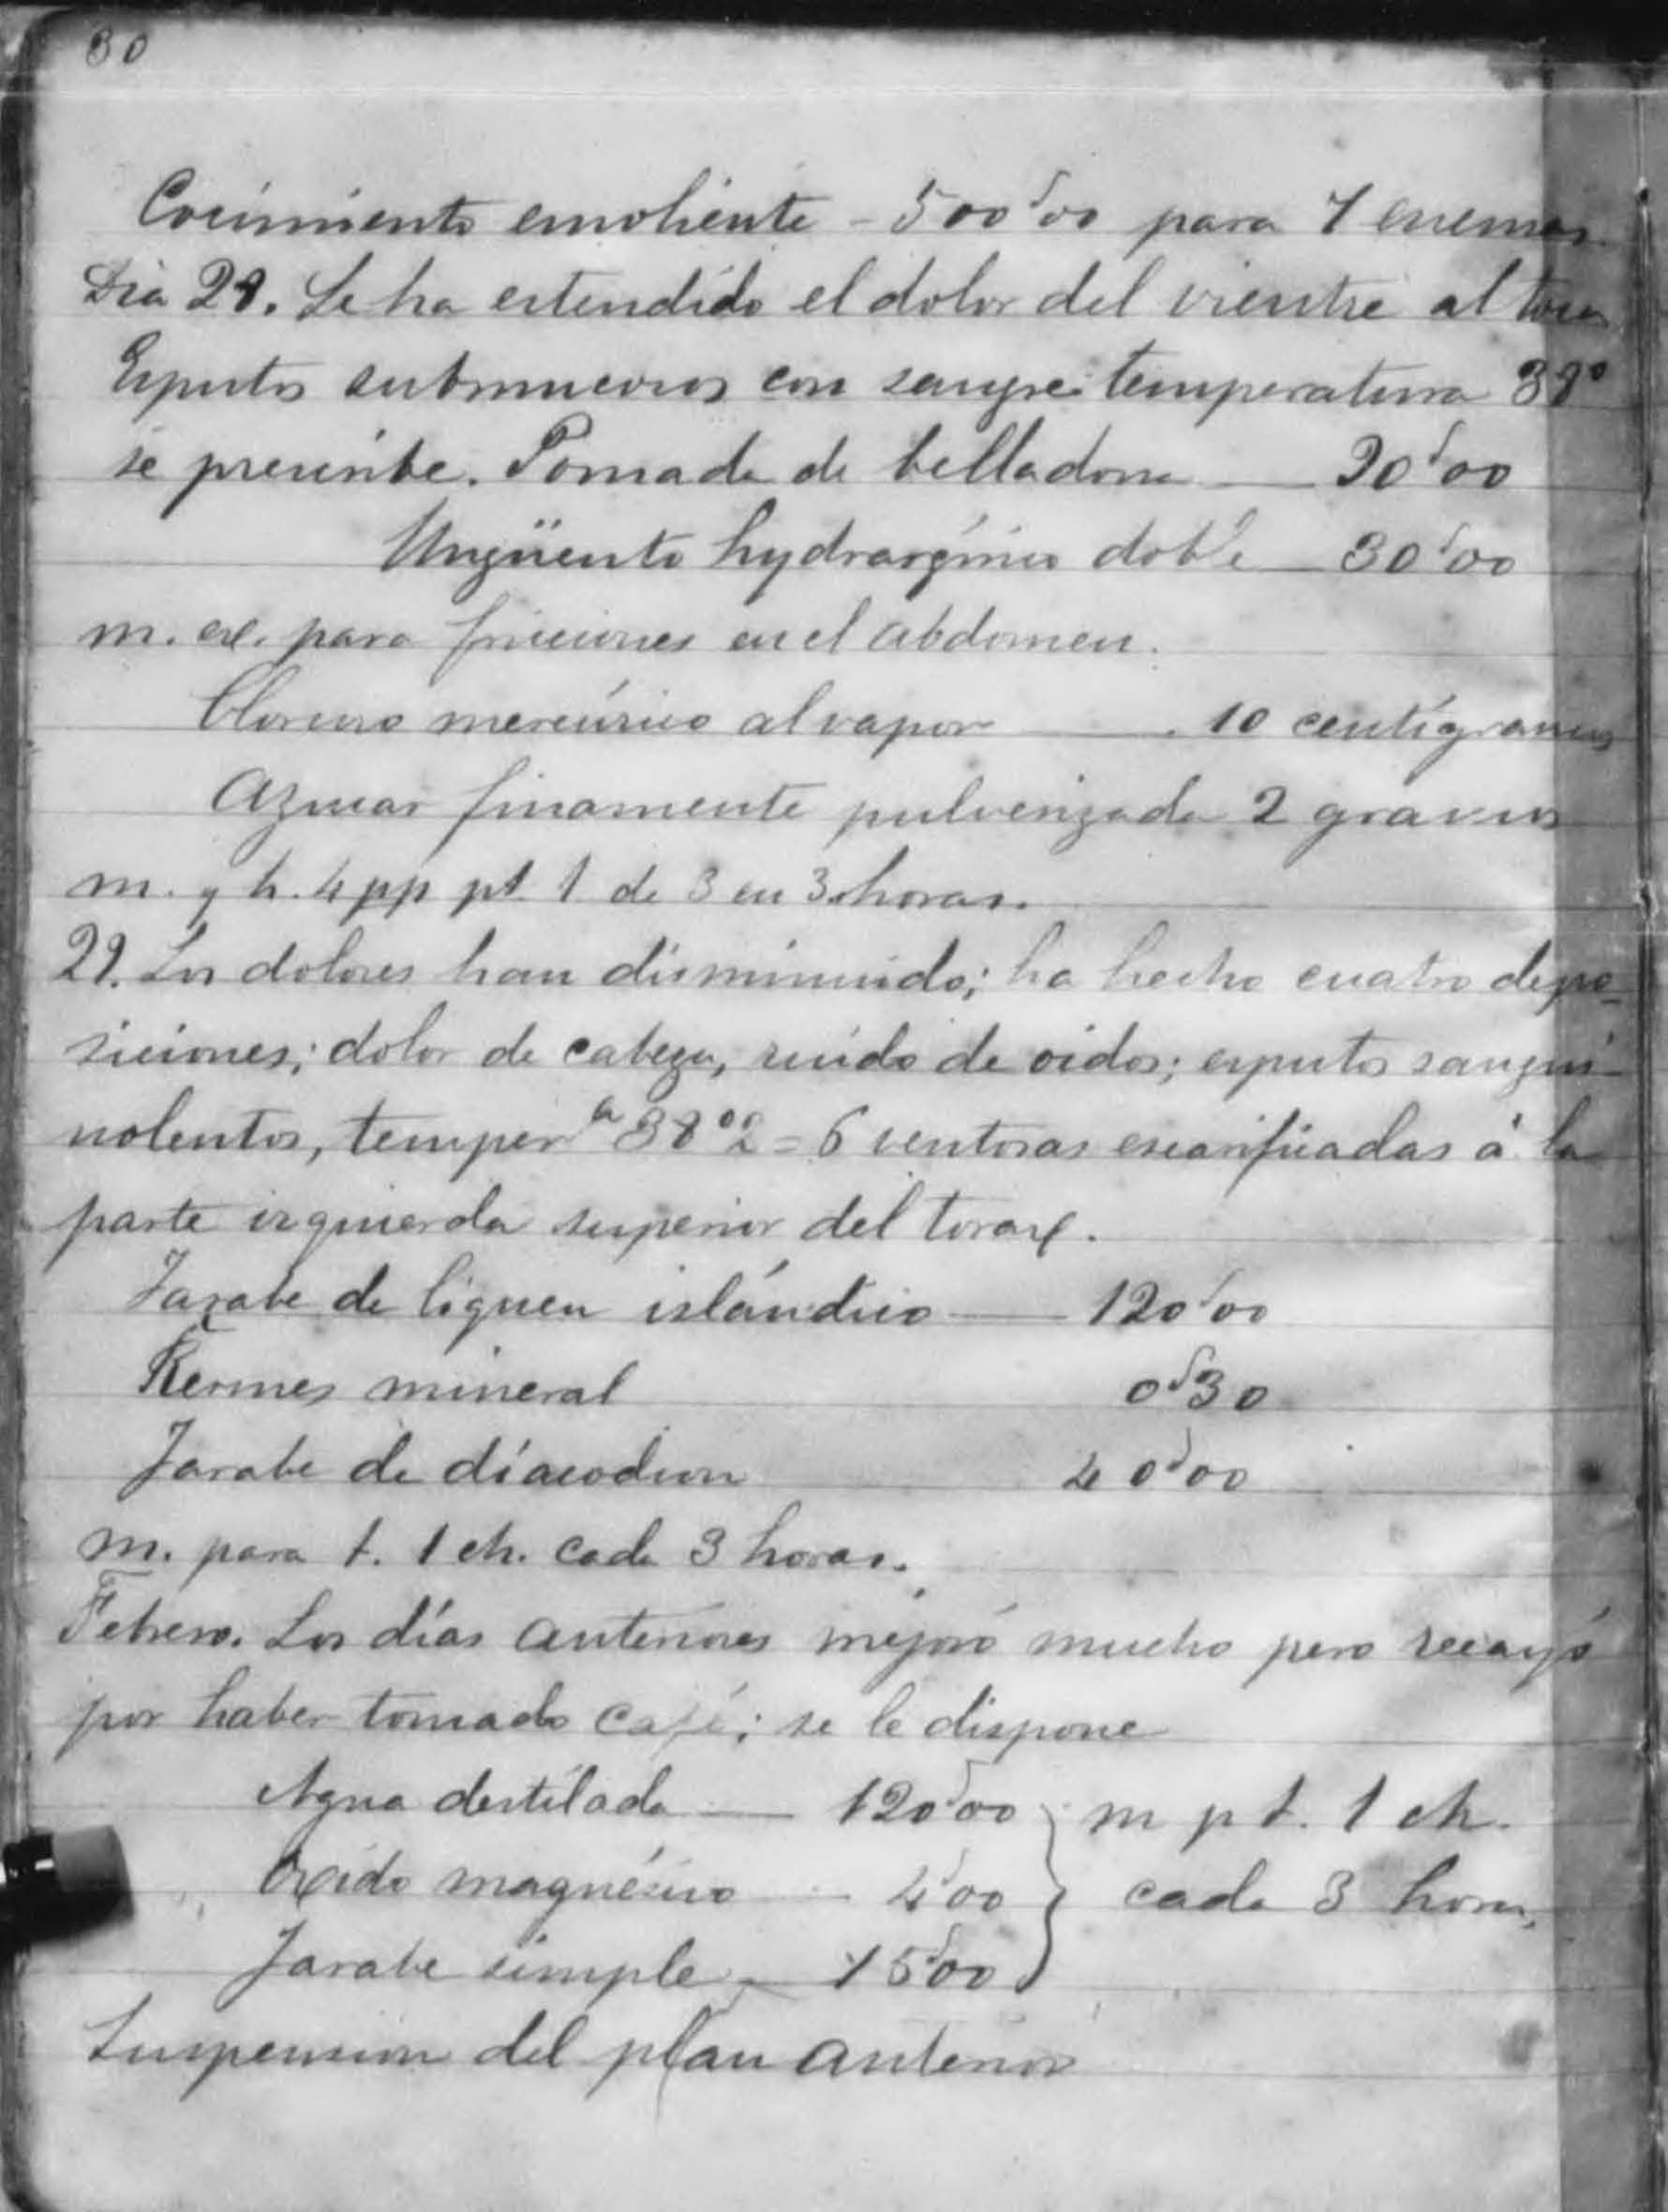 30
Cocimiento emoliente - 500'00 para 1 enemas
Dia 28. Se ha estendido el dolor del vientre al torax
Esputos submucosos con sangre: temperatura 38º
se prescribe. Pomada de belladona — 20'00
Ungüento hydrargírico doble — 30'00
m. ex. para fricciones en el abdomen.
Cloruro mercúrico al vapor — 10 centígramos
Azucar finamente pulverizada 2 gramos
m. y h. 4 pp pt. 1 de 3 en 3 horas.
29. Los dolores han disminuido; ha hecho cuatro depo-
siciones; dolor de cabeza, ruido de oidos; esputos sangui-
nolentos, temperª 38º2 = 6 ventosas escarificadas á la
parte izquierda superior del torax.
Jarabe de liquen islándico — 120'00
Kermes mineral 0'30
Jarabe de díacodion 40'00
m. para t. 1 ch. cada 3 horas.
Febrero. Los días anteriores mejoró mucho pero recayó
por haber tomado café; se le dispone
Agua destilada — 120'00 } m p t. 1 ch.
Oxido magnésico — 4'00 } cada 3 horas.
Jarabe simple — 15'00 }
Suspension del plan anterior